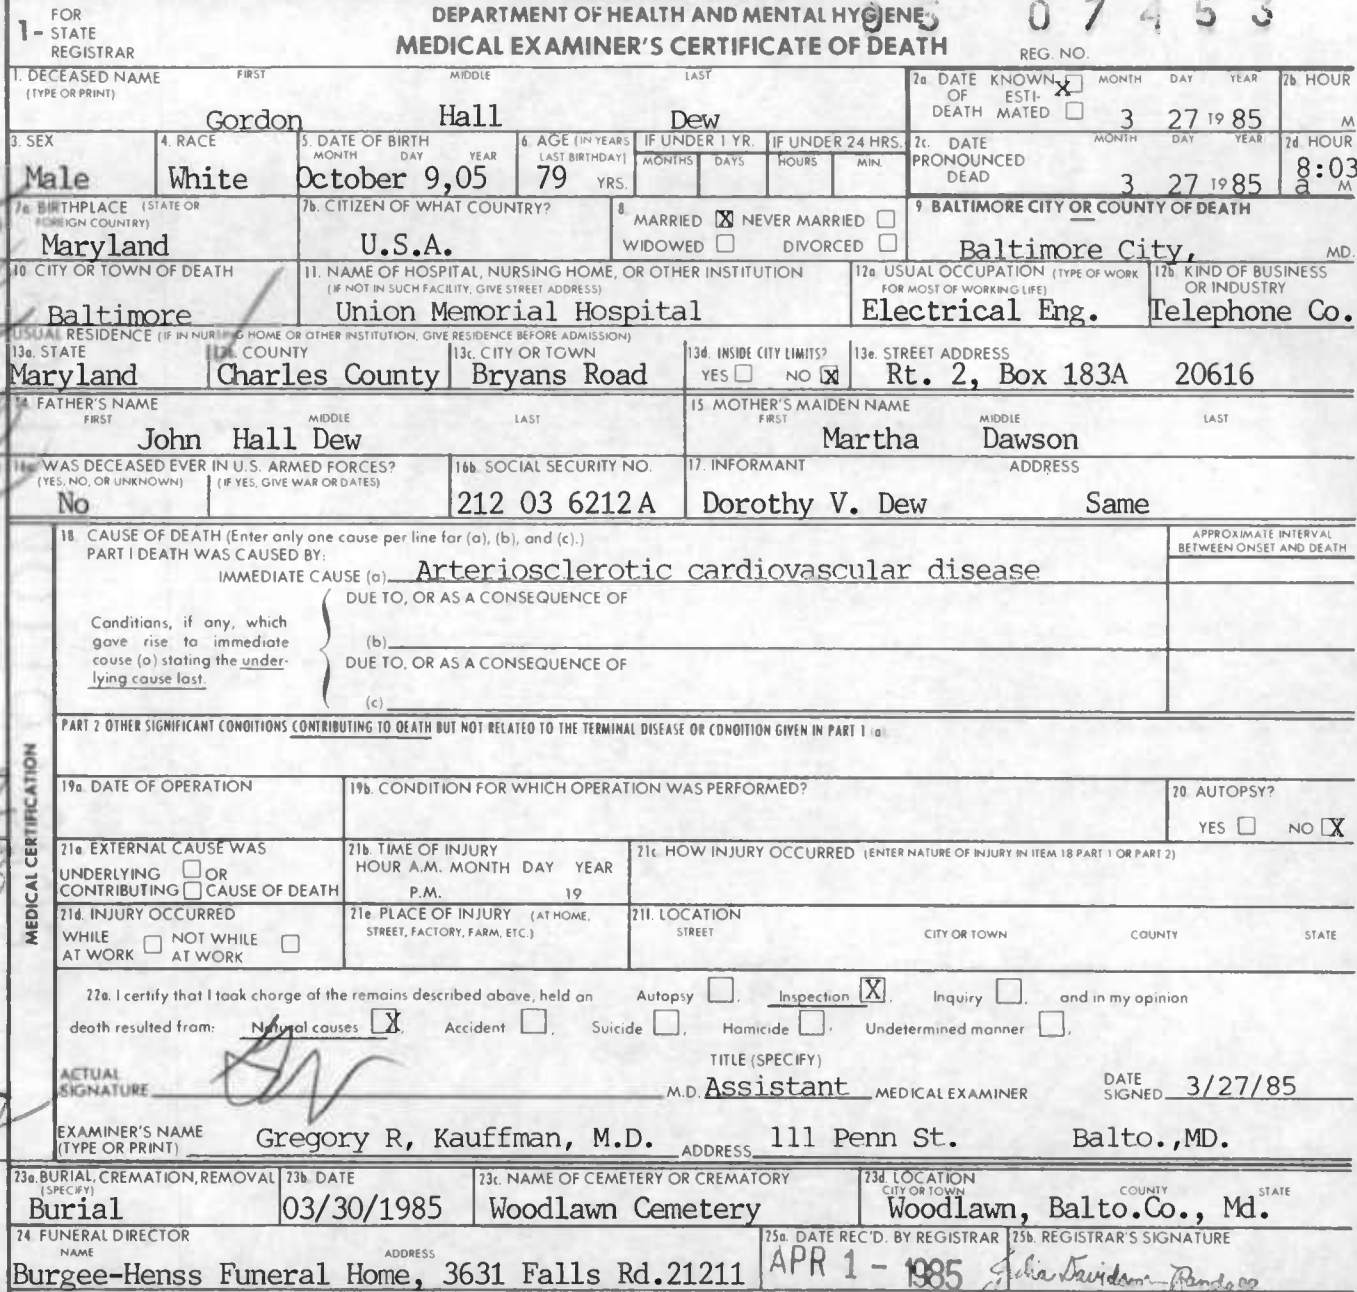 FOR
1- STATE
REGISTRAR
DEPARTMENT OF HEALTH AND MENTAL HYGIENE
MEDICAL EXAMINER'S CERTIFICATE OF DEATH
REG. NO.
1. DECEASED NAME FIRST MIDDLE LAST
(TYPE OR PRINT)
Gordon Hall Dew
2a DATE KNOWN X MONTH DAY YEAR
OF ESTI-
DEATH MATED 3 27 19 85
2b HOUR
M
3. SEX
Male
4. RACE
White
5. DATE OF BIRTH
MONTH DAY YEAR
October 9,05
6. AGE (IN YEARS
LAST BIRTHDAY)
79 YRS.
IF UNDER 1 YR.
MONTHS DAYS
IF UNDER 24 HRS.
HOURS MIN.
2c. DATE MONTH DAY YEAR
PRONOUNCED
DEAD 3 27 1985
2d HOUR
8:03
a M
7a BIRTHPLACE (STATE OR
FOREIGN COUNTRY)
Maryland
7b. CITIZEN OF WHAT COUNTRY?
U.S.A.
8
MARRIED X NEVER MARRIED
WIDOWED DIVORCED
9 BALTIMORE CITY OR COUNTY OF DEATH
Baltimore City, MD.
10 CITY OR TOWN OF DEATH
Baltimore
11. NAME OF HOSPITAL, NURSING HOME, OR OTHER INSTITUTION
(IF NOT IN SUCH FACILITY, GIVE STREET ADDRESS)
Union Memorial Hospital
12a USUAL OCCUPATION (TYPE OF WORK
FOR MOST OF WORKING LIFE)
Electrical Eng.
12b KIND OF BUSINESS
OR INDUSTRY
Telephone Co.
USUAL RESIDENCE (IF IN NURSING HOME OR OTHER INSTITUTION, GIVE RESIDENCE BEFORE ADMISSION)
13a. STATE
Maryland
COUNTY
Charles County
13c. CITY OR TOWN
Bryans Road
13d. INSIDE CITY LIMITS?
YES NO X
13e. STREET ADDRESS
Rt. 2, Box 183A 20616
14 FATHER'S NAME
FIRST MIDDLE LAST
John Hall Dew
15 MOTHER'S MAIDEN NAME
FIRST MIDDLE LAST
Martha Dawson
WAS DECEASED EVER IN U.S. ARMED FORCES?
(YES, NO, OR UNKNOWN) (IF YES, GIVE WAR OR DATES)
No
16b SOCIAL SECURITY NO.
212 03 6212 A
17. INFORMANT ADDRESS
Dorothy V. Dew Same
MEDICAL CERTIFICATION
18 CAUSE OF DEATH (Enter only one cause per line for (a), (b), and (c).)
PART I DEATH WAS CAUSED BY:
IMMEDIATE CAUSE (a) Arteriosclerotic cardiovascular disease
APPROXIMATE INTERVAL
BETWEEN ONSET AND DEATH
DUE TO, OR AS A CONSEQUENCE OF
Conditions, if any, which
gave rise to immediate
cause (a) stating the under-
lying cause last.
(b)
DUE TO, OR AS A CONSEQUENCE OF
(c)
PART 2 OTHER SIGNIFICANT CONDITIONS CONTRIBUTING TO DEATH BUT NOT RELATED TO THE TERMINAL DISEASE OR CONDITION GIVEN IN PART 1 (a)
19a. DATE OF OPERATION
19b. CONDITION FOR WHICH OPERATION WAS PERFORMED?
20 AUTOPSY?
YES NO X
21a EXTERNAL CAUSE WAS
UNDERLYING OR
CONTRIBUTING CAUSE OF DEATH
21b. TIME OF INJURY
HOUR A.M. MONTH DAY YEAR
P.M. 19
21c. HOW INJURY OCCURRED (ENTER NATURE OF INJURY IN ITEM 18 PART 1 OR PART 2)
21d. INJURY OCCURRED
WHILE NOT WHILE
AT WORK AT WORK
21e PLACE OF INJURY (AT HOME,
STREET, FACTORY, FARM, ETC.)
21f. LOCATION
STREET CITY OR TOWN COUNTY STATE
22a. I certify that I took charge of the remains described above, held an Autopsy , Inspection X, Inquiry , and in my opinion
death resulted from: Natural causes X, Accident , Suicide , Homicide , Undetermined manner ,
ACTUAL
SIGNATURE
TITLE (SPECIFY)
M.D. Assistant MEDICAL EXAMINER
DATE
SIGNED 3/27/85
EXAMINER'S NAME
(TYPE OR PRINT) Gregory R, Kauffman, M.D. ADDRESS 111 Penn St. Balto.,MD.
23a. BURIAL, CREMATION, REMOVAL
(SPECIFY)
Burial
23b DATE
03/30/1985
23c. NAME OF CEMETERY OR CREMATORY
Woodlawn Cemetery
23d. LOCATION
CITY OR TOWN COUNTY STATE
Woodlawn, Balto.Co., Md.
24 FUNERAL DIRECTOR
NAME ADDRESS
Burgee-Henss Funeral Home, 3631 Falls Rd.21211
25a. DATE REC'D. BY REGISTRAR
APR 1 - 1985
25b. REGISTRAR'S SIGNATURE